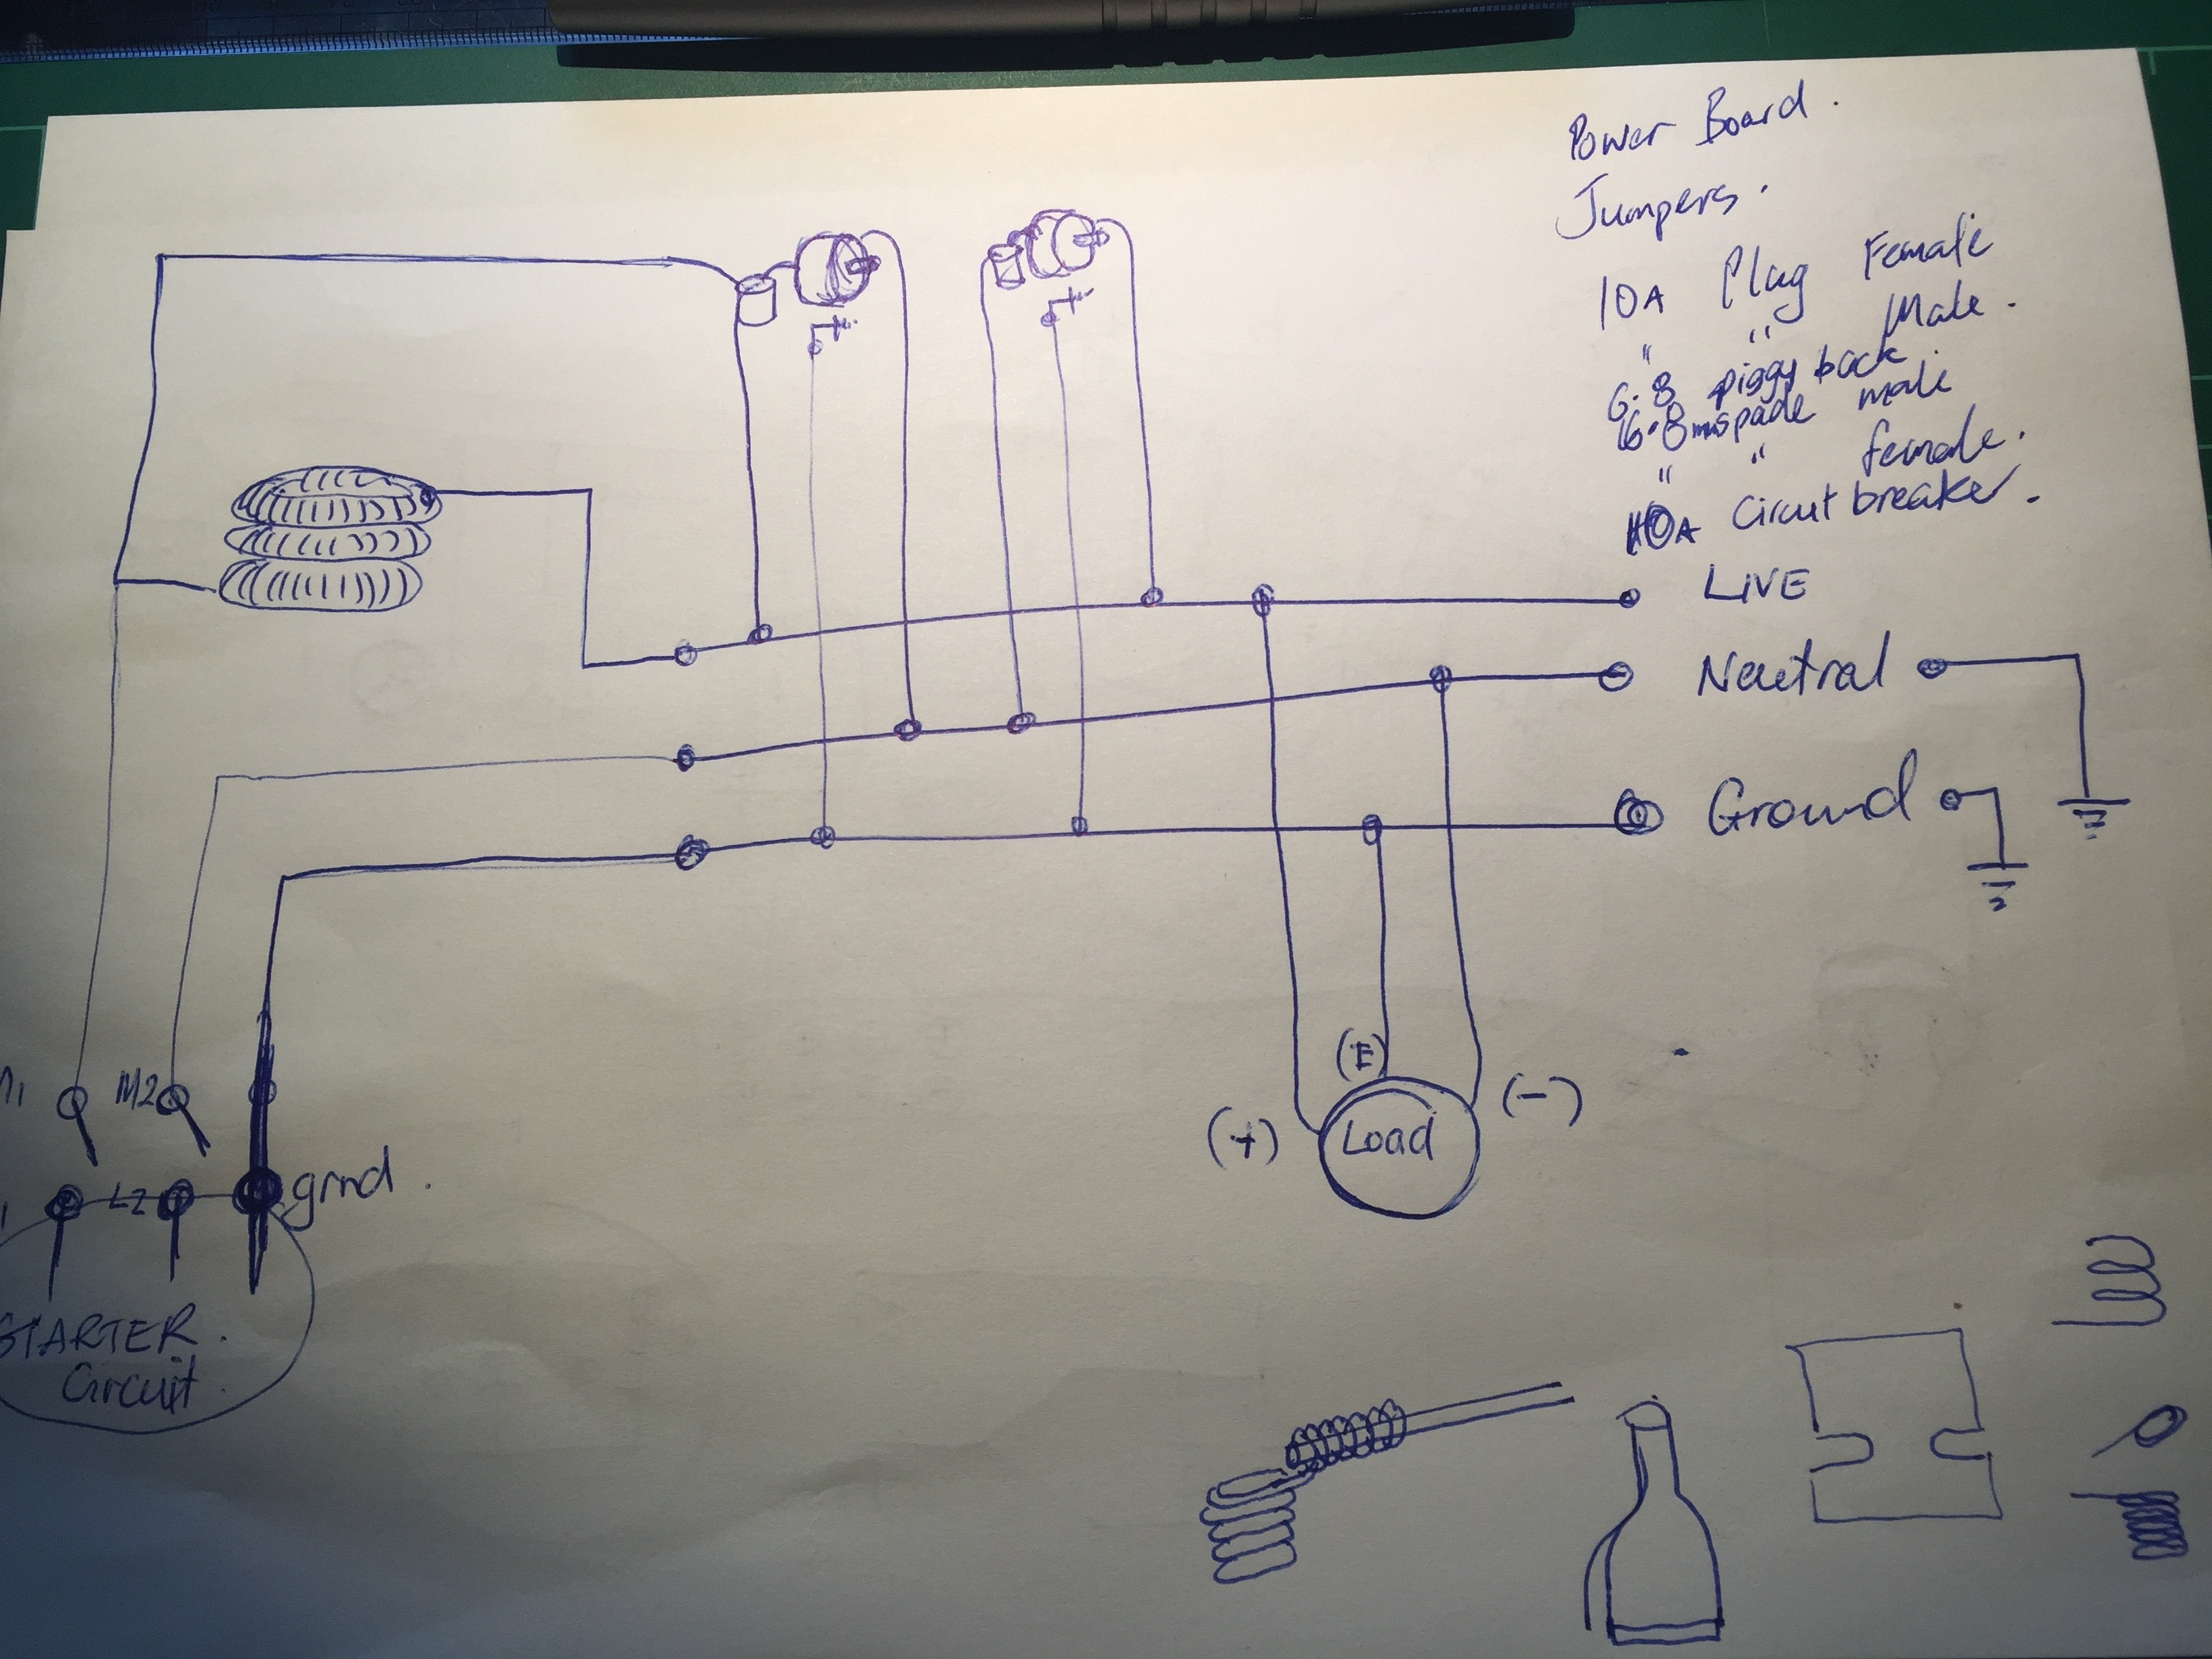 Power Board.
Jumpers.
10A Plug Female
" " Male.
6.8 piggy back
6.8mm spade male
" " female.
10A Circuit breaker.
LIVE
Neutral
Ground
(E)
(+)
(-)
Load
M2
L2
grnd.
STARTER.
Circuit.